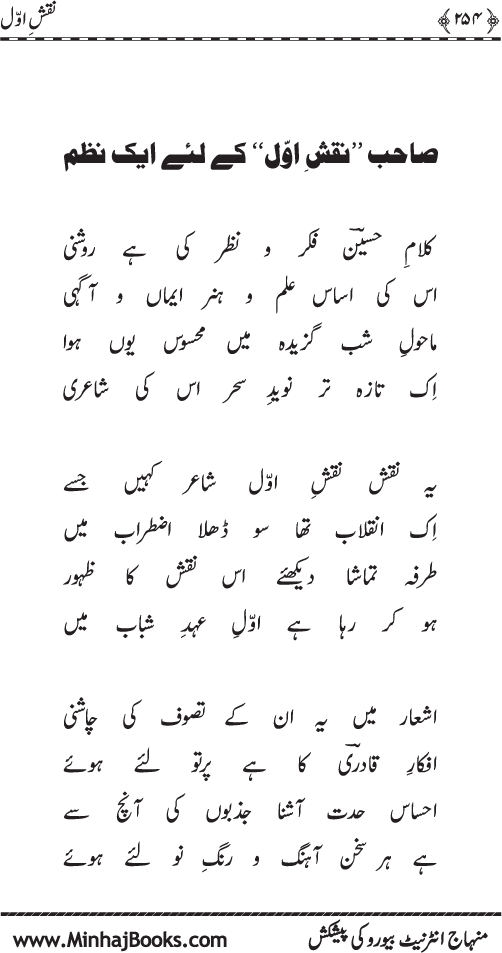 ﴿۲۵۴﴾ نقشِ اوّل
صاحب ’’نقشِ اوّل‘‘ کے لئے ایک نظم
کلامِ حسینؔ فکر و نظر کی ہے روشنی
اس کی اساس علم و ہنر ایماں و آگہی
ماحولِ شب گزیدہ میں محسوس یوں ہوا
اِک تازہ تر نویدِ سحر اس کی شاعری
یہ نقش نقشِ اوّل شاعر کہیں جسے
اِک انقلاب تھا سو ڈھلا اضطراب میں
طرفہ تماشا دیکھئے اس نقش کا ظہور
ہو کر رہا ہے اوّلِ عہدِ شباب میں
اشعار میں یہ ان کے تصوف کی چاشنی
افکارِ قادریؔ کا ہے پرتو لئے ہوئے
احساس حدت آشنا جذبوں کی آنچ سے
ہے ہر سخن آہنگ و رنگِ نو لئے ہوئے
منہاج انٹرنیٹ بیورو کی پیشکش www.MinhajBooks.com